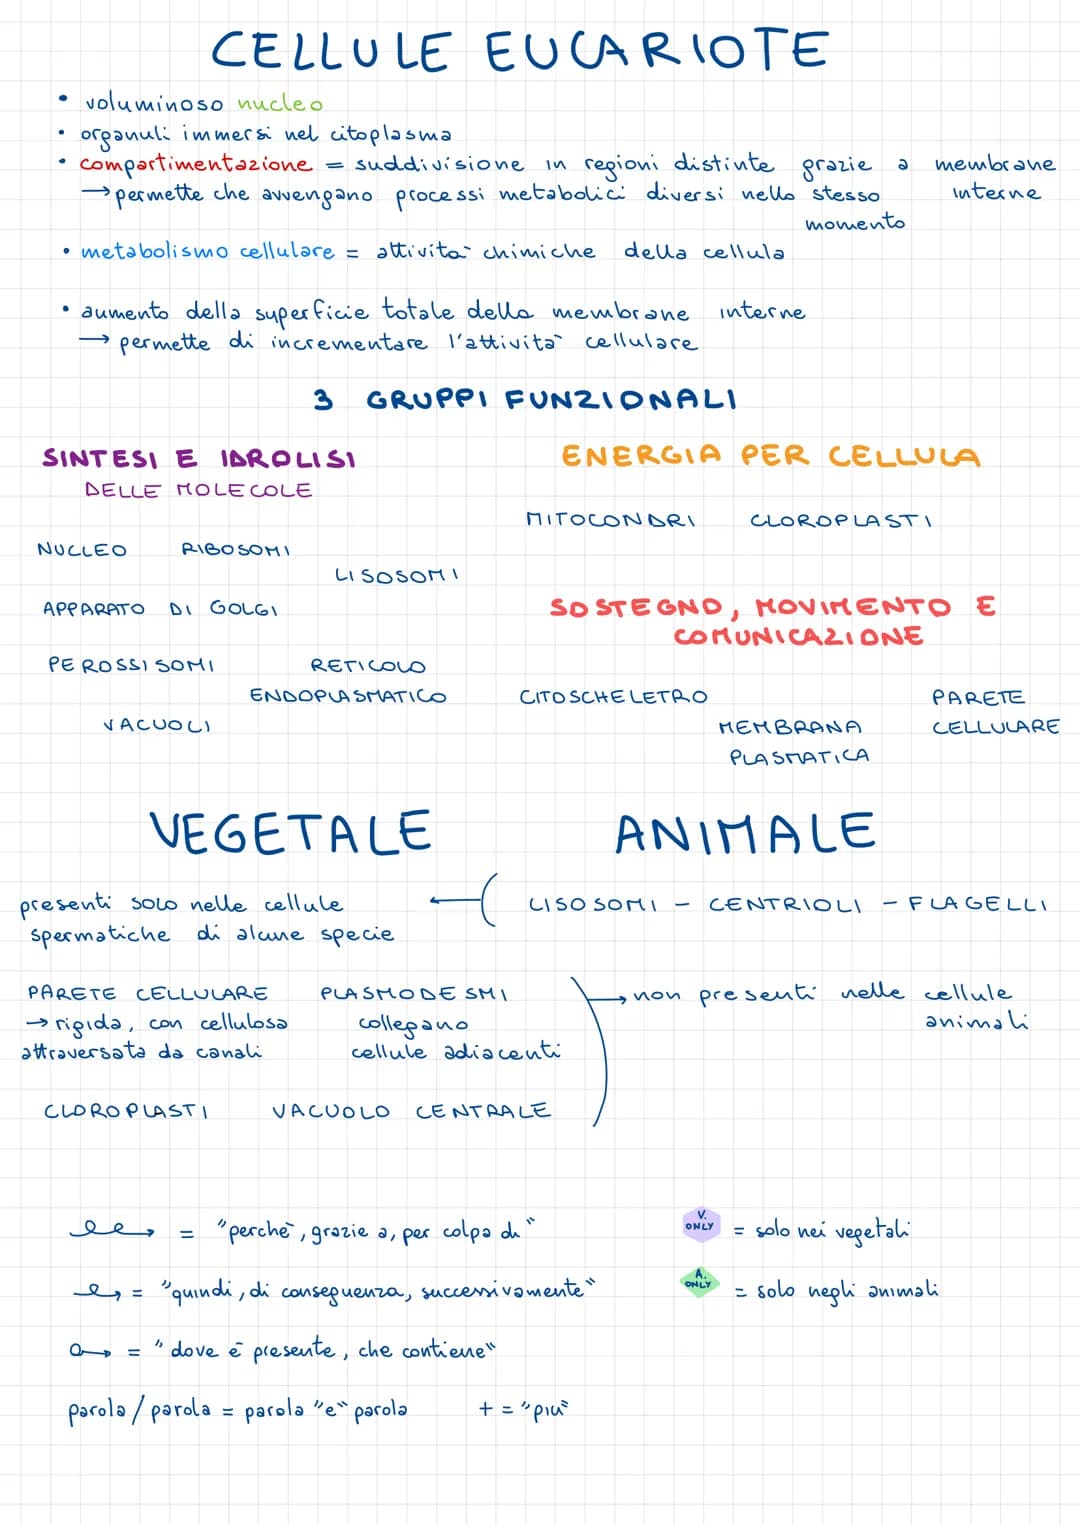 CELLULE EUCARIOTE
• voluminoso nucleo
• organuli immersi nel citoplasma
• compartimentazione = suddivisione in regioni distinte grazie a membrane interne
→ permette che avvengano processi metabolici diversi nello stesso momento
• metabolismo cellulare = attività chimiche della cellula
• aumento della superficie totale della membrane interne
→ permette di incrementare l'attività cellulare
3 GRUPPI FUNZIONALI
SINTESI E IDROLISI
DELLE MOLECOLE
NUCLEO RIBOSOMI
LISOSOMI
APPARATO DI GOLGI
PEROSSISOMI
RETICOLO
ENDOPLASMATICO
VACUOLI
ENERGIA PER CELLULA
MITOCONDRI CLOROPLASTI
SOSTEGNO, MOVIMENTO E
COMUNICAZIONE
CITOSCHELETRO
MEMBRANA
PLASMATICA
PARETE
CELLULARE
VEGETALE ANIMALE
presenti SOLO nelle cellule
spermatiche di alcune specie
LISOSOMI - CENTRIOLI - FLAGELLI
PARETE CELLULARE
→ rigida, con cellulosa
attraversata da canali
PLASMODESMI
collegano
cellule adiacenti
→ non presenti nelle cellule
animali
CLOROPLASTI VACUOLO CENTRALE
= "perchè, grazie a, per colpa di"
= "quindi, di conseguenza, successivamente"
= "dove è presente, che contiene"
parola / parola = parola "e" parola + = "più"
V. ONLY = solo nei vegetali
A. ONLY = solo negli animali